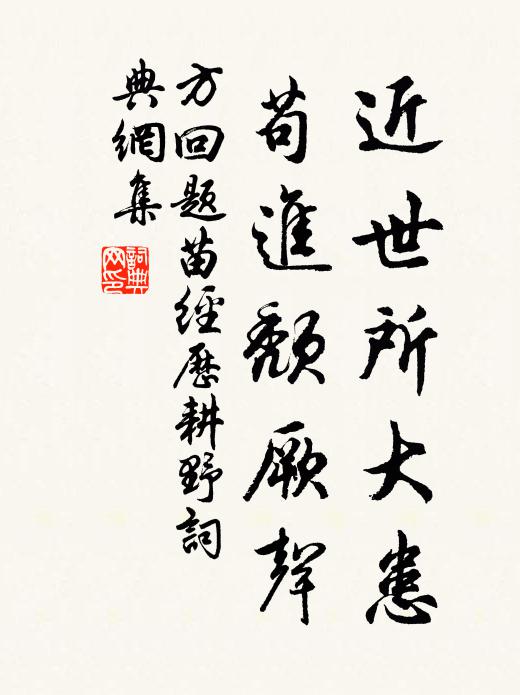 近世所大患
苟進頹厥聲
方回題苗經歷耕野詞
典網集
詞典網印